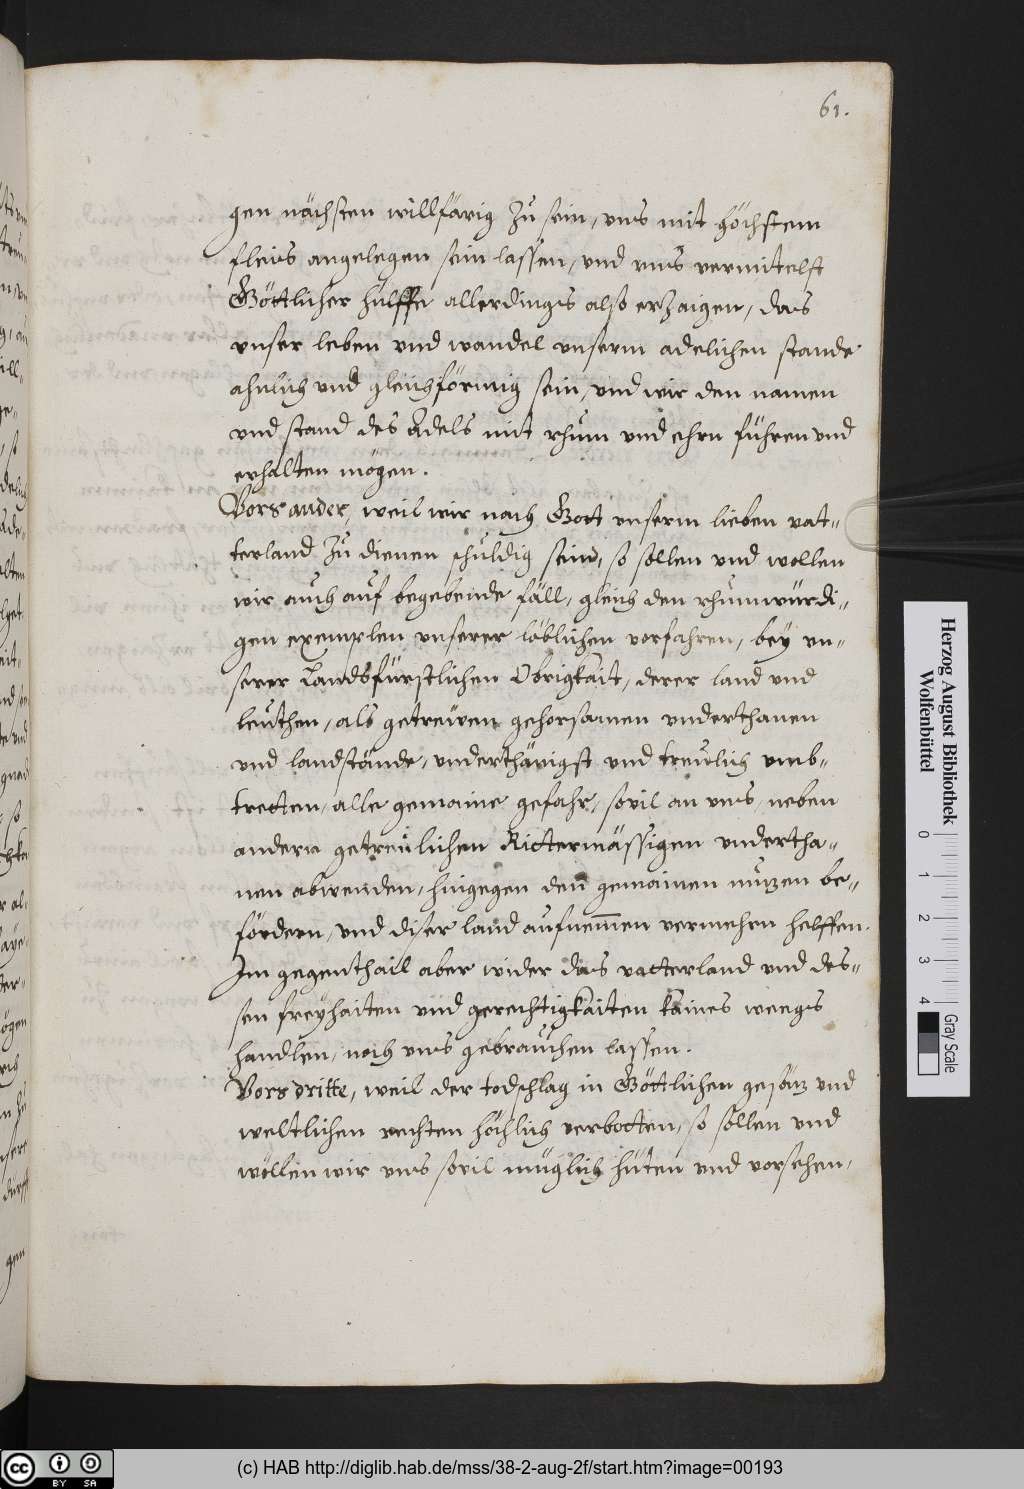 61.
gen nächsten willfärig zu sein, uns mit höchstem
fleis angelegen sein lassen, und uns vermitelst
Göttlicher hülffe allerdings also erzaigen, das
unser leben und wandel unserm adelichen stande
ahnlich und gleichförmig sein, und wir den namen
und stand des Adels mit rhum und ehrn führen und
erhalten mögen.
Vors ander, weil wir nach Gott unserm lieben vat-
terland zu dienen schuldig sein, so sollen und wollen
wir auch auf begebende fäll, gleich den rhumwürdi-
gen exemplen unserer löblichen vorfahren, bey un-
serer Landsfürstlichen Obrigkait, derer land und
leuthen, als getreüen gehorsamen underthanen
und landstände, underthänigst und treulich umb-
tretten, alle gemaine gefahr, sovil an uns, neben
andern getreülichen Rittermässigen undertha-
nen abwenden, hingegen den gemainen nuzen be-
fördern, und diser land aufnemmen vermehrn helffen.
Im gegenthail aber wider das vatterland und des-
sen freyhaiten und gerechtigkaiten kaines weegs
handlen, noch uns gebrauchen lassen.
Vors dritte, weil der todschlag in Göttlichen gesäz und
weltlichen rechten höchlich verbotten, so sollen und
wöllen wir uns sovil müglich hüten und vorsehen,
gen
Herzog August Bibliothek
Wolfenbüttel
0 1 2 3 4
Gray Scale
cc BY SA
(c) HAB http://diglib.hab.de/mss/38-2-aug-2f/start.htm?image=00193